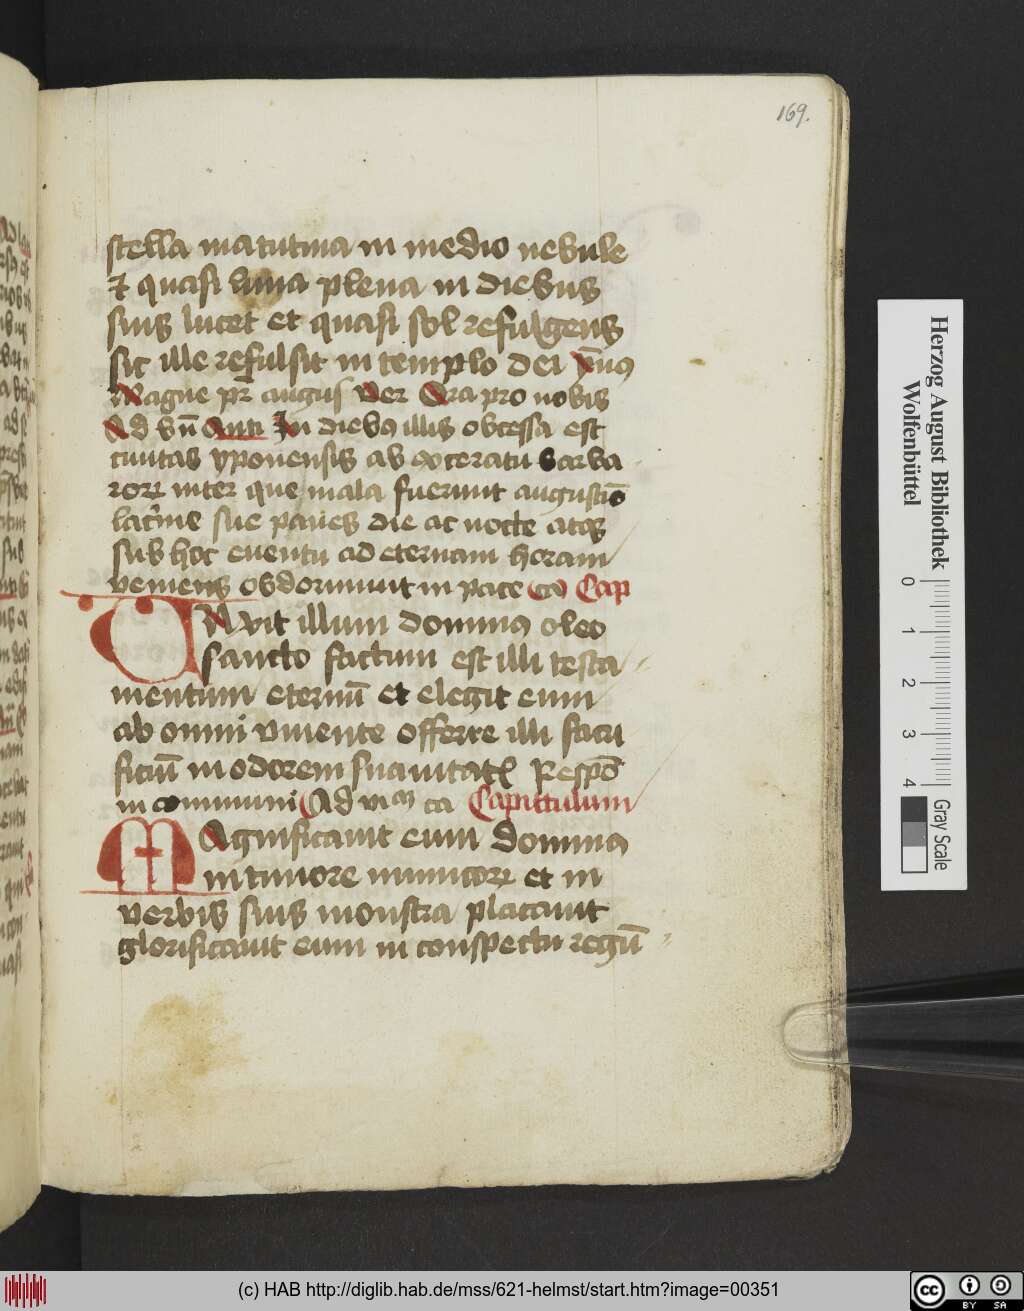 169.
stella matutina in medio nebule
et quasi luna plena in diebus
suis lucet et quasi sol refulgens
sic ille refulsit in templo dei
Magne pr̄ augus Ver Ora pro nobis
Ad bn̄ Anti In diebꝯ illis obcessa est
ciuitas yponensis ab barba
rorꝝ inter que mala fuerunt augustiō
sue panes die ac nocte atqꝫ
sub hoc euentu ad eternam horam
veniens obdormiuit in pace Cap
Unxit illum dominꝯ oleo
sancto factum est illi testa
mentum eternū et elegit eum
ab omni viuente offerre illi sacri
ficiū in odorem suauitatꝭ Respō
in communi Ad vi ca Capittulum
Magnificauit eum dominꝯ
in timore inimicorꝝ et in
verbis suis monstra placauit
glorificauit eum in conspectu regū
Herzog August Bibliothek
Wolfenbüttel
0 1 2 3 4
Gray Scale
(c) HAB http://diglib.hab.de/mss/621-helmst/start.htm?image=00351
cc BY SA